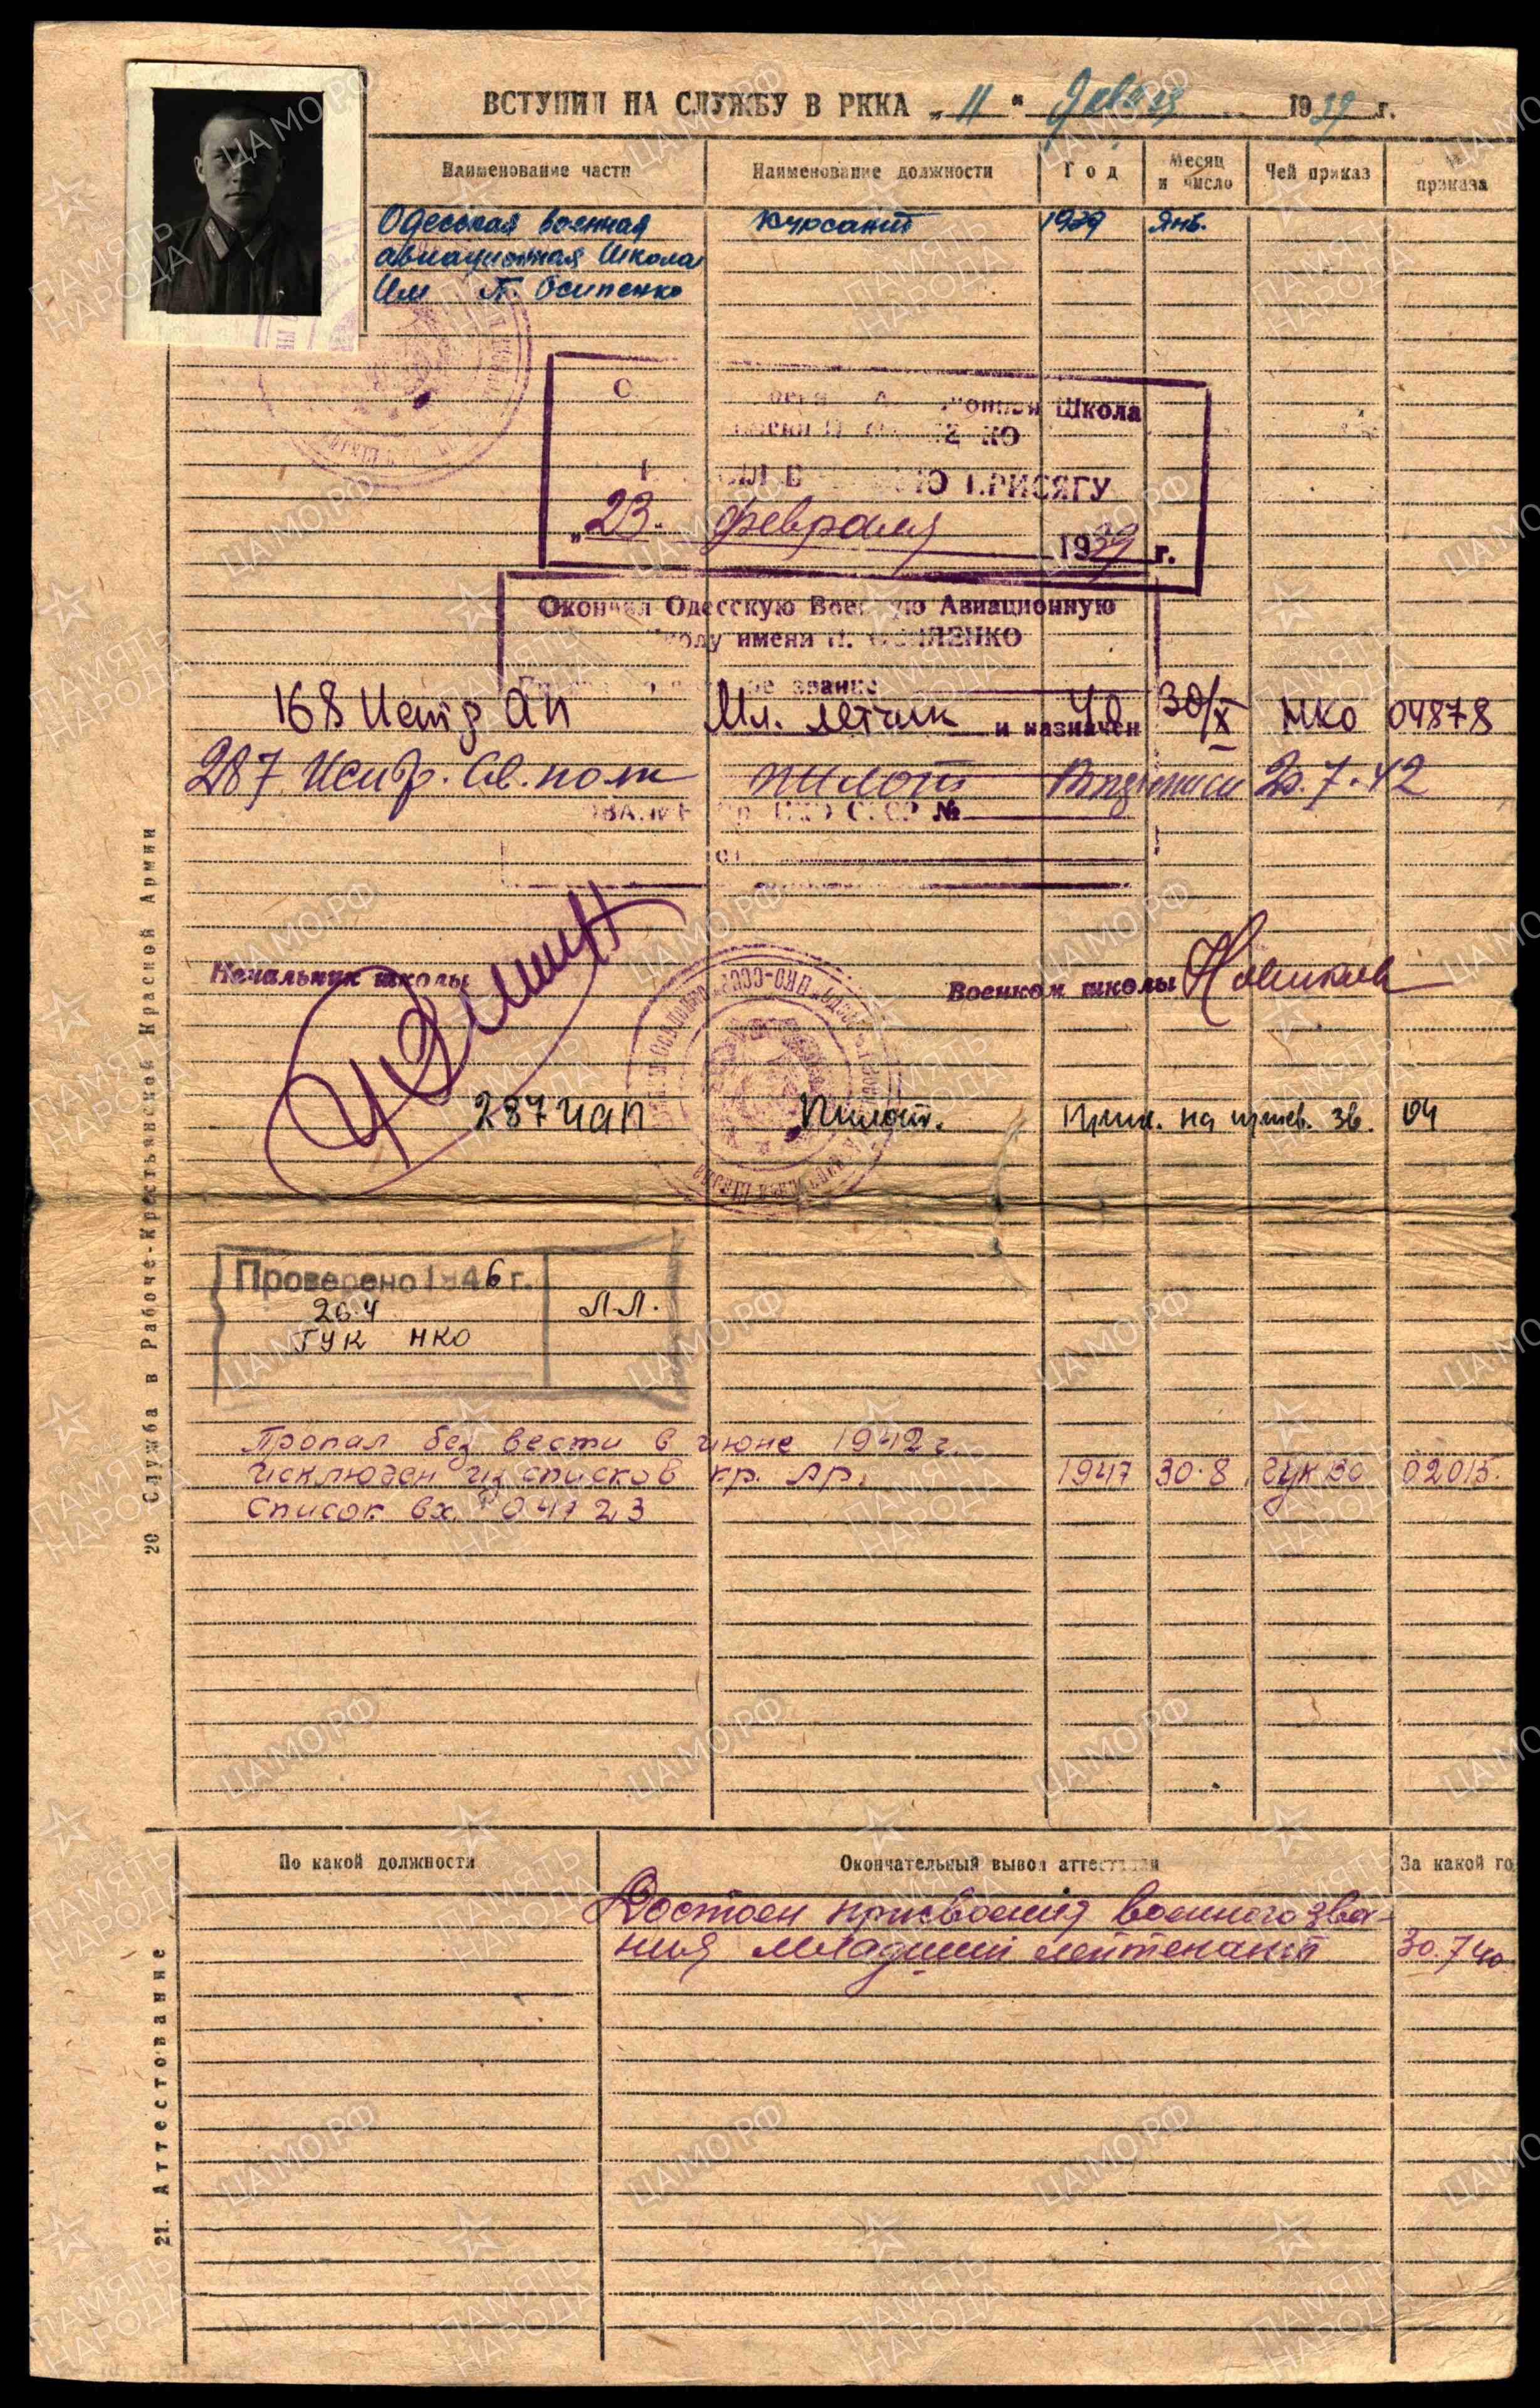 ВСТУПИЛ НА СЛУЖБУ В РККА „11“ 1939 г.
Наименование части Наименование должности Год Месяц и число Чей приказ № приказа
Одесская военная курсант 1939 Янв.
авиационная Школа
Им П. Осипенко
Школа
КО
ПРИСЯГУ
„23“ февраля 1939 г.
Окончил Одесскую Военную Авиационную
имени П. ОСИПЕНКО
звание
168 Истр АП Мл. летчик и назначен 40 30/X НКО 04878
287 Истр. Ав. полк пилот 20.7.42
СССР №
Начальник школы
Военком школы Новиков
287 ИАП Пилот. на присв. зв. 04
Проверено 1946 г.
26.4 Л.Л.
ГУК НКО
Пропал без вести в июне 1942 г.
исключен из списков кр. Ар. 1947 30.8 02015.
Список вх. 04723
20 Служба в Рабоче-Крестьянской Красной Армии
По какой должности Окончательный вывод аттестации За какой го
Достоен присвоения военного зва-
ния младший лейтенант 30.7 40
21. Аттестование
ЦАМО.РФ
ПАМЯТЬ
НАРОДА